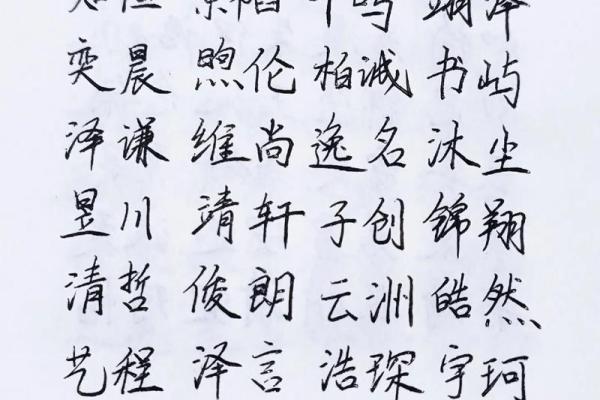 奕晨 煦伦 柏诚 书屿
泽谦 维尚 逸名 沐尘
昱川 靖轩 子创 锦翔
清哲 俊朗 云洲 皓然
艺程 泽言 浩琛 宇珂